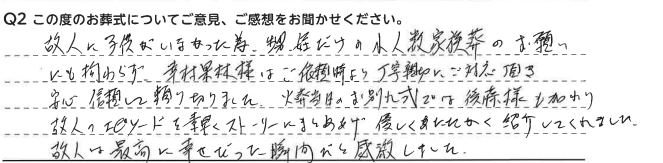 Q2 この度のお葬式についてご意見、ご感想をお聞かせください。
故人に子供がいなかった為、甥姪だけの小人数家族葬のお願い
にも拘わらず、幸村果林様はご依頼時より丁寧親切にご対応頂き
安心信頼して頼り切りました。火葬当日のお別れ式では後藤様も加わり
故人のエピソードを素早くストーリーにまとめあげ優しくあたたかく紹介してくれました。
故人は最高に幸せだった瞬間だと感激しました。